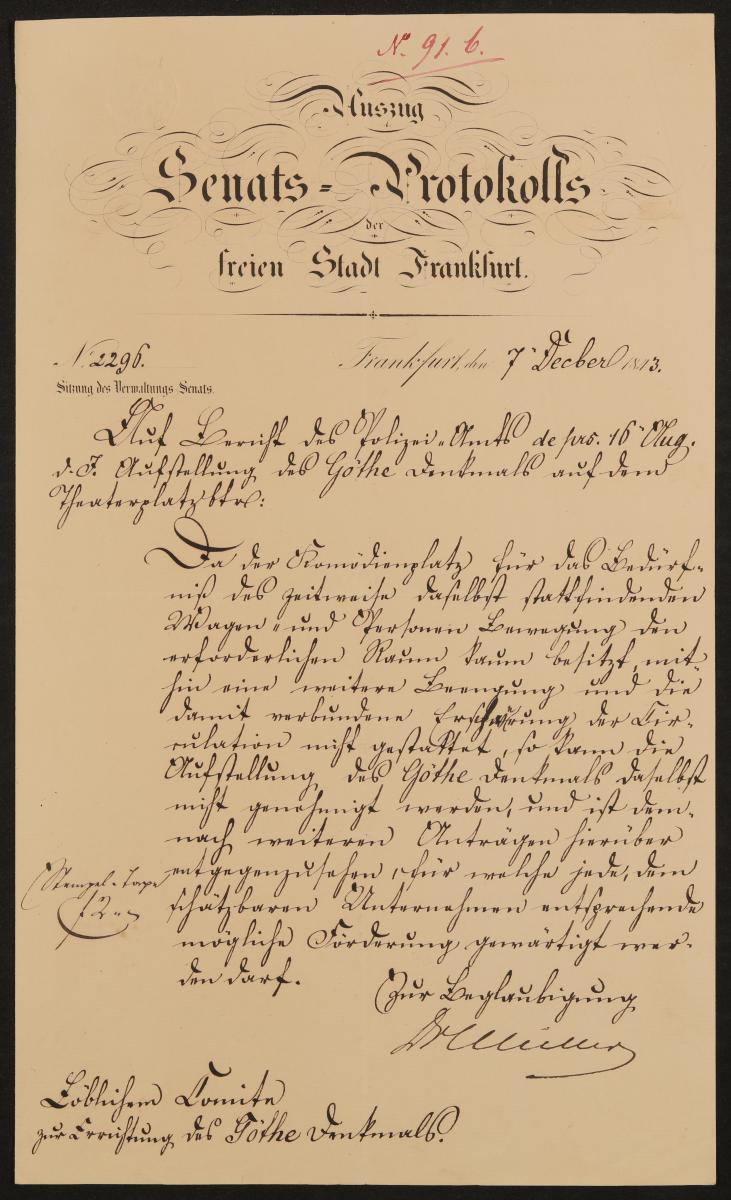 No. 91. 6.
Auszug
Senats=Protokolls
der
freien Stadt Frankfurt.
No. 2296.
Frankfurt, den 7n Decber 1843.
Sitzung des Verwaltungs-Senats.
Auf Bericht des Polizei-Amts de prs. 16n Aug.
d. J. Aufstellung des Göthe Denkmals auf dem
Theaterplatz btr:
Da der Komödienplatz für das Bedürf-
niß des zeitweise daselbst stattfindenden
Wagen- und Personen Bewegung den
erforderlichen Raum kaum besitzt, mit-
hin eine weitere Beengung und die
damit verbundene der Cir-
culation nicht gestattet, so kann die
Aufstellung des Göthe Denkmals daselbst
nicht genehmigt werden, und ist dem-
nach weiteren Anträgen hierüber
entgegenzusehen, für welche jede, dem
schätzbaren Unternehmen entsprechende
mögliche Förderung gewärtigt wer-
den darf.
Stempel-Taxe
Zur Beglaubigung
Müller
Löblichem Comite
zur Errichtung des Göthe Denkmals.